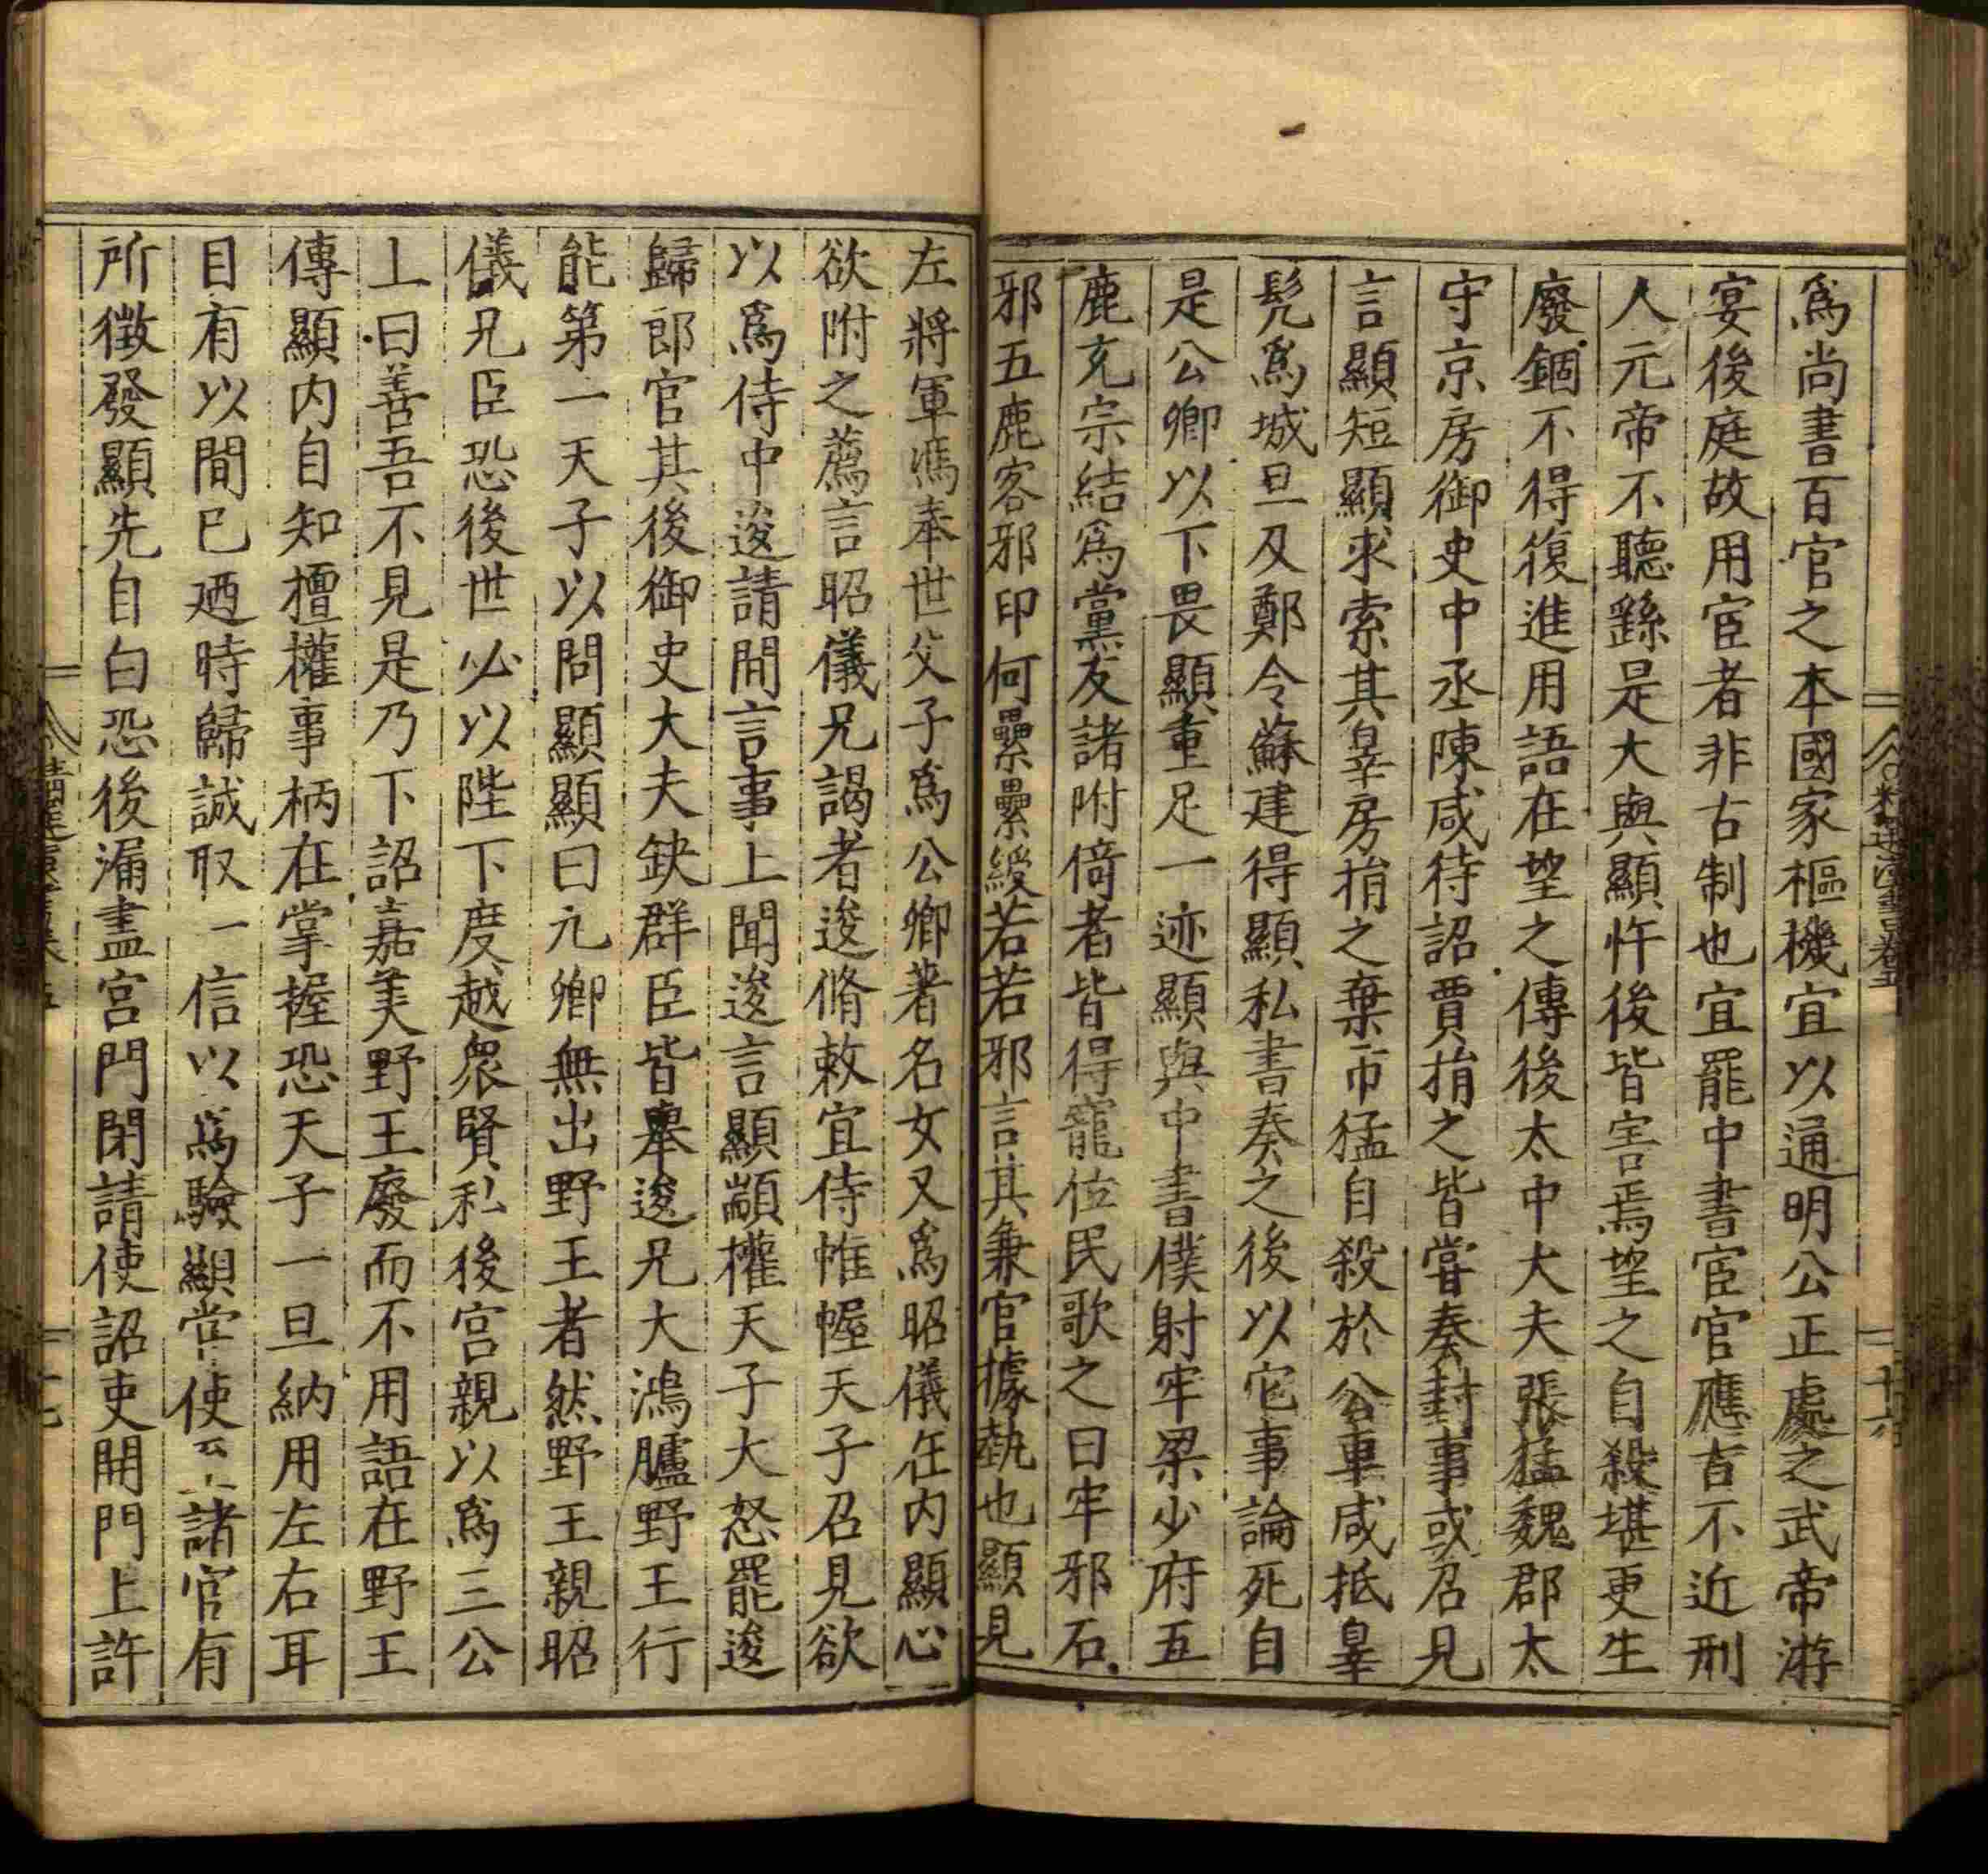 爲尚書百官之本國家樞機宜以通明公正處之武帝游
宴後庭故用宦者非古制也宜罷中書宦官應古不近刑
人元帝不聽繇是大與顯忤後皆害焉望之自殺堪更生
廢錮不得復進用語在望之傳後太中大夫張猛魏郡太
守京房御史中丞陳咸待詔賈捐之皆嘗奏封事或召見
言顯短顯求索其辠房捐之棄市猛自殺於公車咸抵辠
髡爲城旦及鄭令蘇建得顯私書奏之後以它事論死自
是公卿以下畏顯重足一迹顯與中書僕射牢梁少府五
鹿充宗結爲黨友諸附倚者皆得寵位民歌之曰牢邪石
邪五鹿客邪印何纍纍綬若若邪言其兼官據埶也顯見
左將軍馮奉世父子爲公卿著名女又爲昭儀在内顯心
欲附之薦言昭儀兄謁者逡脩敕宜侍帷幄天子召見欲
以爲侍中逡請間言事上聞逡言顯顓權天子大怒罷逡
歸郎官其後御史大夫缺群臣皆舉逡兄大鴻臚野王行
能第一天子以問顯顯曰九卿無出野王者然野王親昭
儀兄臣恐後世必以陛下度越衆賢私後宫親以爲三公
上曰善吾不見是乃下詔嘉美野王廢而不用語在野王
傳顯内自知擅權事柄在掌握恐天子一旦納用左右耳
目有以間已廼時歸誠取一信以爲驗顯嘗使至諸官有
所徵發顯先自白恐後漏盡宫門閉請使詔吏開門上許
十六